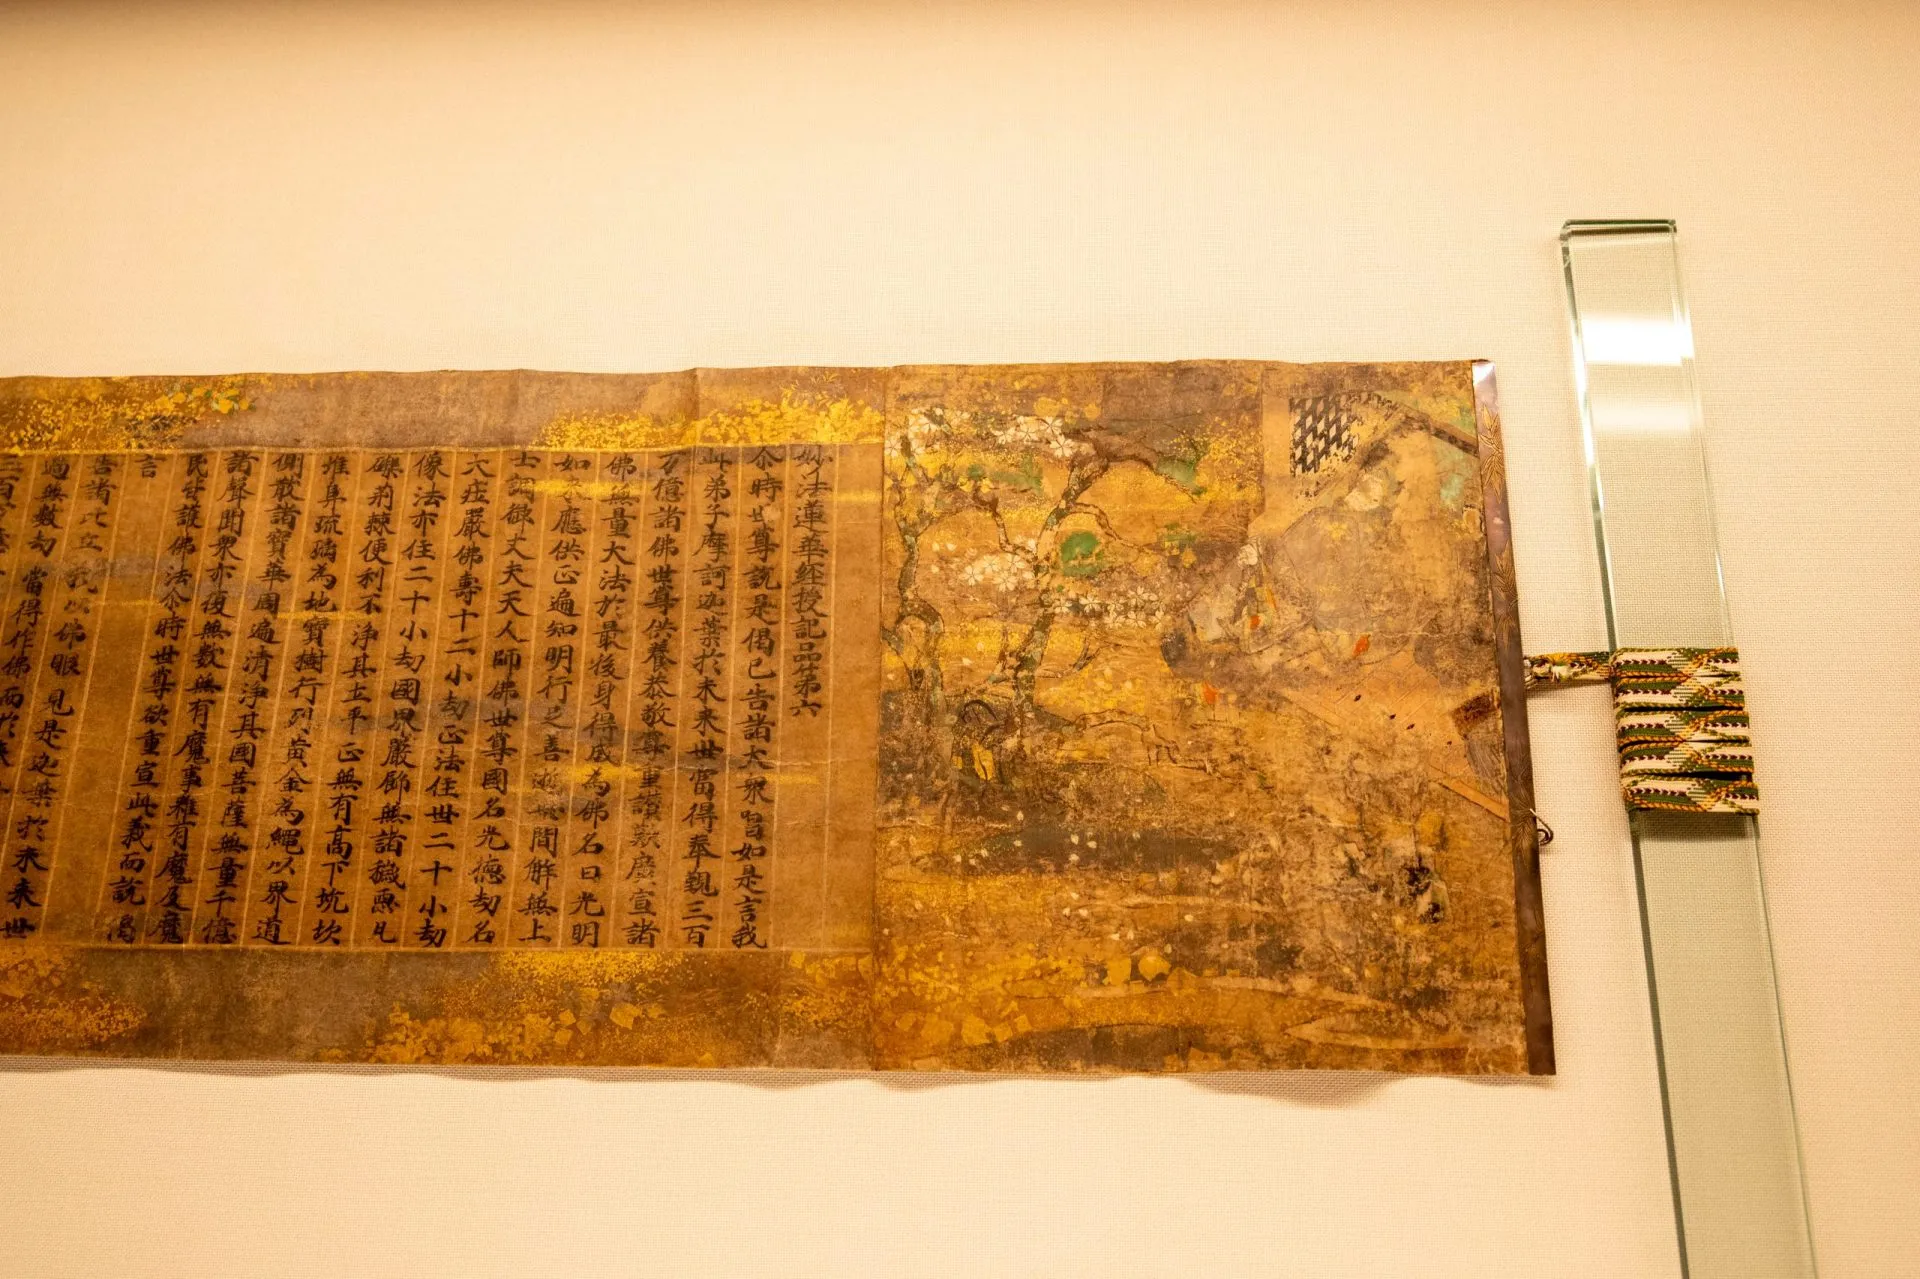 妙法蓮華經授記品第六
尒時世尊說是偈已告諸大衆唱如是言我
此弟子摩訶迦葉於未來世當得奉覲三百
万億諸佛世尊供養恭敬尊重讃歎廣宣諸
佛無量大法於最後身得成為佛名曰光明
如來應供正遍知明行足善逝世間解無上
士調御丈夫天人師佛世尊國名光德劫名
大莊嚴佛壽十二小劫正法住世二十小劫
像法亦住二十小劫國界嚴飾無諸穢惡凡
礫荊棘便利不淨其土平正無有高下坑坎
堆阜琉璃為地寶樹行列黃金為繩以界道
側散諸寶華周遍清淨其國菩薩無量千億
諸聲聞衆亦復無數無有魔事雖有魔及魔
民皆護佛法尒時世尊欲重宣此義而說偈
言
告諸比丘 我以佛眼 見是迦葉 於未來世
過無數劫 當得作佛 而於來
三百